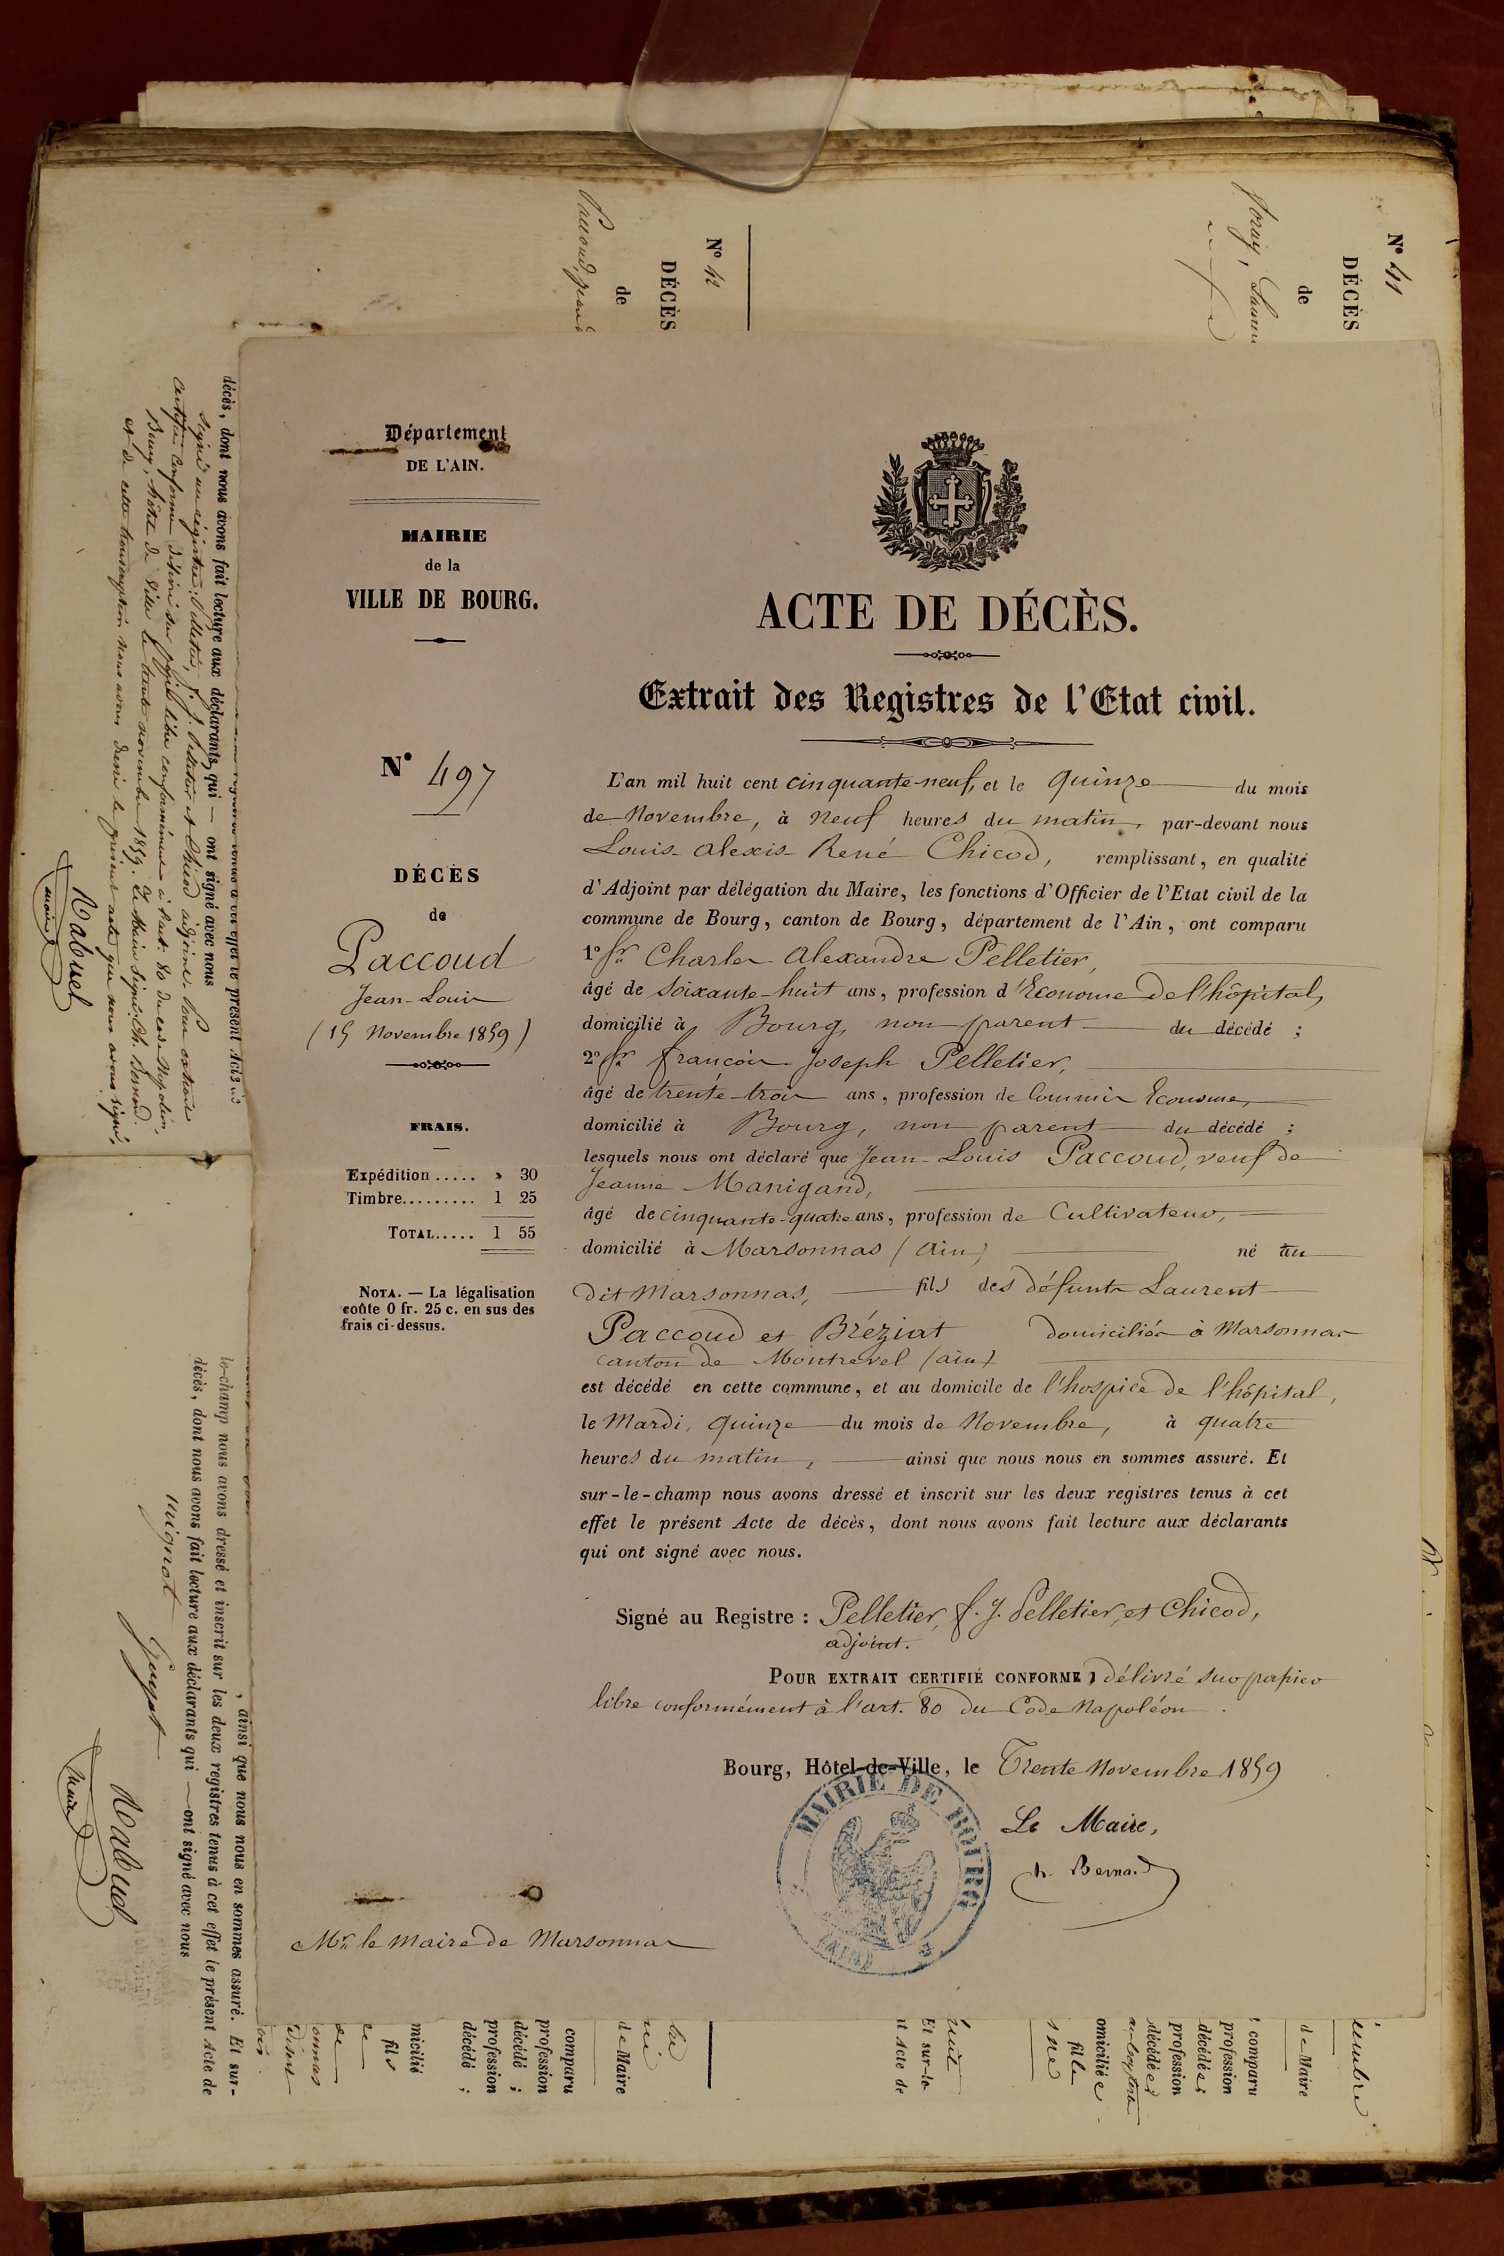 Département
DE L'AIN.
MAIRIE
de la
VILLE DE BOURG.
N° 497
DÉCÈS
de
Paccoud
Jean-Louis
(15 Novembre 1859)
FRAIS.
Expédition ..... » 30
Timbre......... 1 25
TOTAL..... 1 55
NOTA. — La légalisation
coûte 0 fr. 25 c. en sus des
frais ci-dessus.
ACTE DE DÉCÈS.
Extrait des Registres de l'Etat civil.
L'an mil huit cent cinquante-neuf, et le quinze du mois
de Novembre, à neuf heures du matin, par-devant nous
Louis-Alexis-René Chicod, remplissant, en qualité
d'Adjoint par délégation du Maire, les fonctions d'Officier de l'Etat civil de la
commune de Bourg, canton de Bourg, département de l'Ain, ont comparu
1° Sr Charles Alexandre Pelletier,
âgé de soixante-huit ans, profession d'Econome de l'hôpital,
domicilié à Bourg, non parent du décédé ;
2° Sr François Joseph Pelletier,
âgé de trente-trois ans, profession de Commis Econome,
domicilié à Bourg, non parent du décédé ;
lesquels nous ont déclaré que Jean-Louis Paccoud, veuf de
Jeanne Manigand,
âgé de cinquante-quatre ans, profession de Cultivateur,
domicilié à Marsonnas (Ain) né au
dit Marsonnas, fils des défunts Laurent
Paccoud et Bréziat domiciliés à Marsonnas
canton de Montrevel (ain)
est décédé en cette commune, et au domicile de l'hospice de l'hôpital,
le Mardi, quinze du mois de Novembre, à quatre
heures du matin, ainsi que nous nous en sommes assuré. Et
sur-le-champ nous avons dressé et inscrit sur les deux registres tenus à cet
effet le présent Acte de décès, dont nous avons fait lecture aux déclarants
qui ont signé avec nous.
Signé au Registre : Pelletier, f. J. Pelletier, et Chicod,
adjoint.
POUR EXTRAIT CERTIFIÉ CONFORME, délivré sur papier
libre conformément à l'art. 80 du Code Napoléon.
Bourg, Hôtel-de-Ville, le Trente Novembre 1859
Le Maire,
Ch. Bernard
MAIRIE DE BOURG
(AIN)
Mr le Maire de Marsonnas
N° 41
DÉCÈS
de
N° 42
DÉCÈS
de
Paccoud, Jean
décès, dont nous avons fait lecture aux déclarants qui — ont signé avec nous
Signé au registre: Pelletier, f. J. Pelletier et Chicod adjoint. Pour extrait
certifié conforme délivré sur papier libre conformément à l'art. 80 du code Napoléon,
Bourg, hôtel de ville le trente novembre 1859. Le Maire signé: Ch. Bernard.
et de cette transcription nous avons dressé le présent acte que nous avons signé,
Nabuel
maire
, ainsi que nous nous en sommes assuré. Et sur-
le-champ nous avons dressé et inscrit sur les deux registres tenus à cet effet le présent Acte de
décès, dont nous avons fait lecture aux déclarants qui — ont signé avec nous
Guyot
Nabuel
maire
umbre
de Maire
comparu
profession
décédée ;
profession
décédée ;
omiciliée
fille
Et sur-le-
nt Acte de
de Maire
comparu
profession
décédé ;
profession
décédé ;
micilié
fils